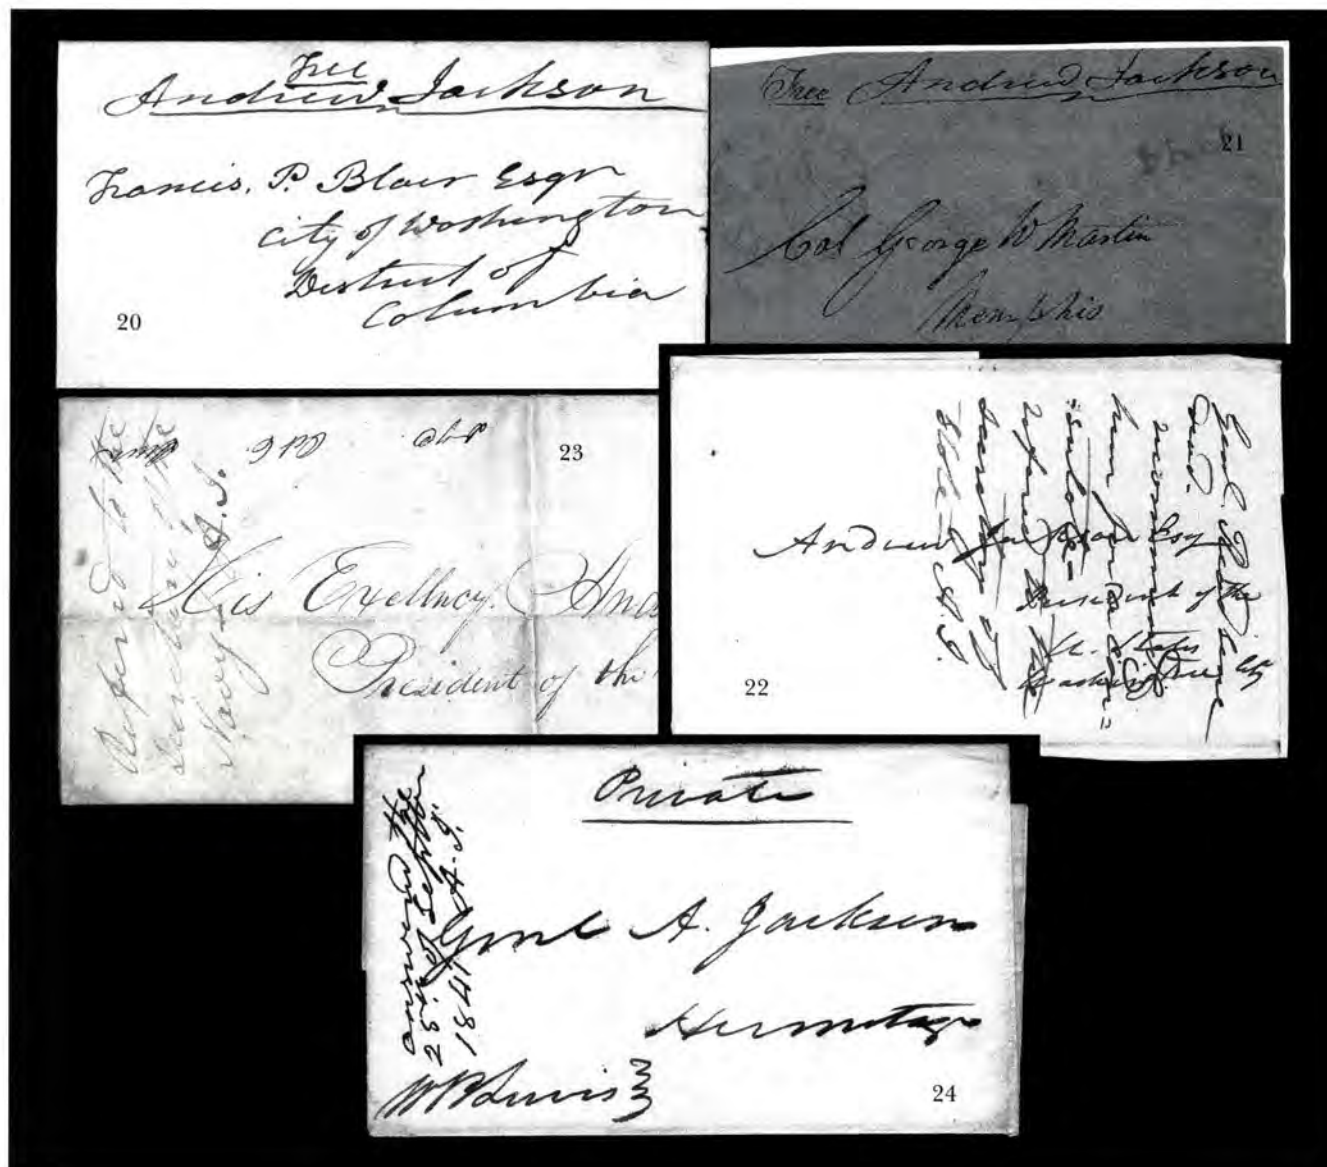 Free
Andrew Jackson
Francis, P. Blair Esqr
City of Washington
District of
Columbia
20
Free Andrew Jackson
21
Col George W Martin
Memphis
23
Refered to the
Secretary of the
Navy A. J.
His Exellncy. And
President of the
Genl.
refered
Secretary of
State A. J.
Andrew Jackson Esq
President of the
U. States
Washington City
22
Private
answered the
25th of Septbr
1841 A. J.
Genl A. Jackson
Hermitage
W B Lewis
24